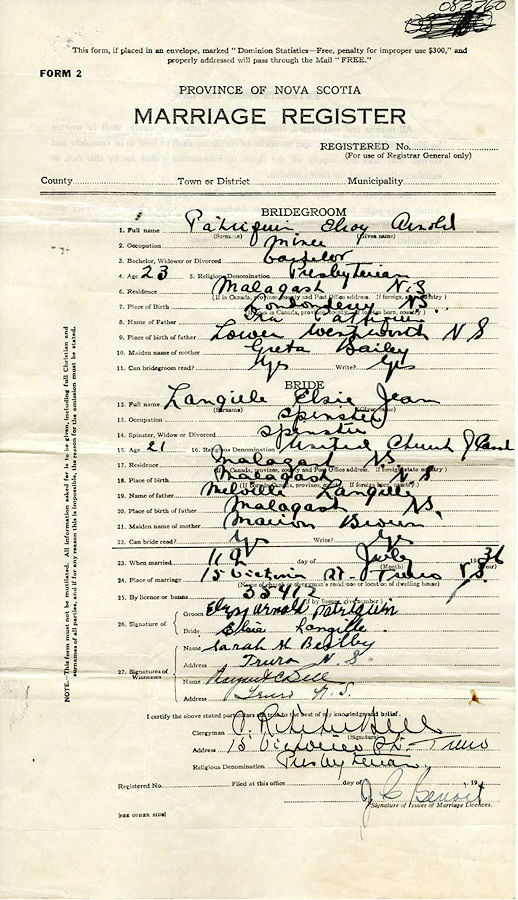 083760
This form, if placed in an envelope, marked "Dominion Statistics—Free, penalty for improper use $300," and
properly addressed will pass through the Mail "FREE."
FORM 2
PROVINCE OF NOVA SCOTIA
MARRIAGE REGISTER
REGISTERED No.
(For use of Registrar General only)
County Town or District Municipality
BRIDEGROOM
1. Full name Patriquin Elroy Arnold
(Surname) (Given name)
2. Occupation Miner
3. Bachelor, Widower or Divorced Bachelor
4. Age 23 5. Religious Denomination Presbyterian
6. Residence Malagash N.S
(If in Canada, province, county and Post Office address. If foreign, state country)
7. Place of Birth Londonderry N.S.
8. Name of Father Patriquin
9. Place of birth of father Lower Wentworth N S
10. Maiden name of mother Greta Bailey
11. Can bridegroom read? Yes Write? Yes
BRIDE
12. Full name Langille Elsie Jean
(Surname)
13. Occupation Spinster
14. Spinster, Widow or Divorced Spinster
15. Age 21 16. Religious Denomination United Church
17. Residence Malagash NS
(If in Canada, province, county and Post Office address. If foreign state country)
18. Place of birth Malagash N S
19. Name of father Melville Langille
20. Place of birth of father Malagash NS.
21. Maiden name of mother Marion Brown
22. Can bride read? Yes Write? Yes
23. When married 11 day of July 1936
(Month)
24. Place of marriage 15 Victoria St. Truro N.S.
(Name of church or clergyman's residence or location of dwelling house)
25. By licence or banns
(If by licence give number)
26. Signature of Groom Elroy Arnold Patriquin
Bride Elsie Langille
27. Signatures of Witnesses
Name Sarah H
Address Truro N. S.
Name Bell
Address Truro N.S.
I certify the above stated particulars are true to the best of my knowledge and belief.
Clergyman Bell
(Signature)
Address 15 Victoria St. Truro
Religious Denomination Presbyterian
Registered No. Filed at this office day of 19
J C Benoit
Signature of Issuer of Marriage Licences.
[SEE OTHER SIDE]
NOTE—This form must not be mutilated. All information asked for is to be given, including full Christian and
surnames of all parties, and if for any reason this is impossible, the reason for the omission must be stated.